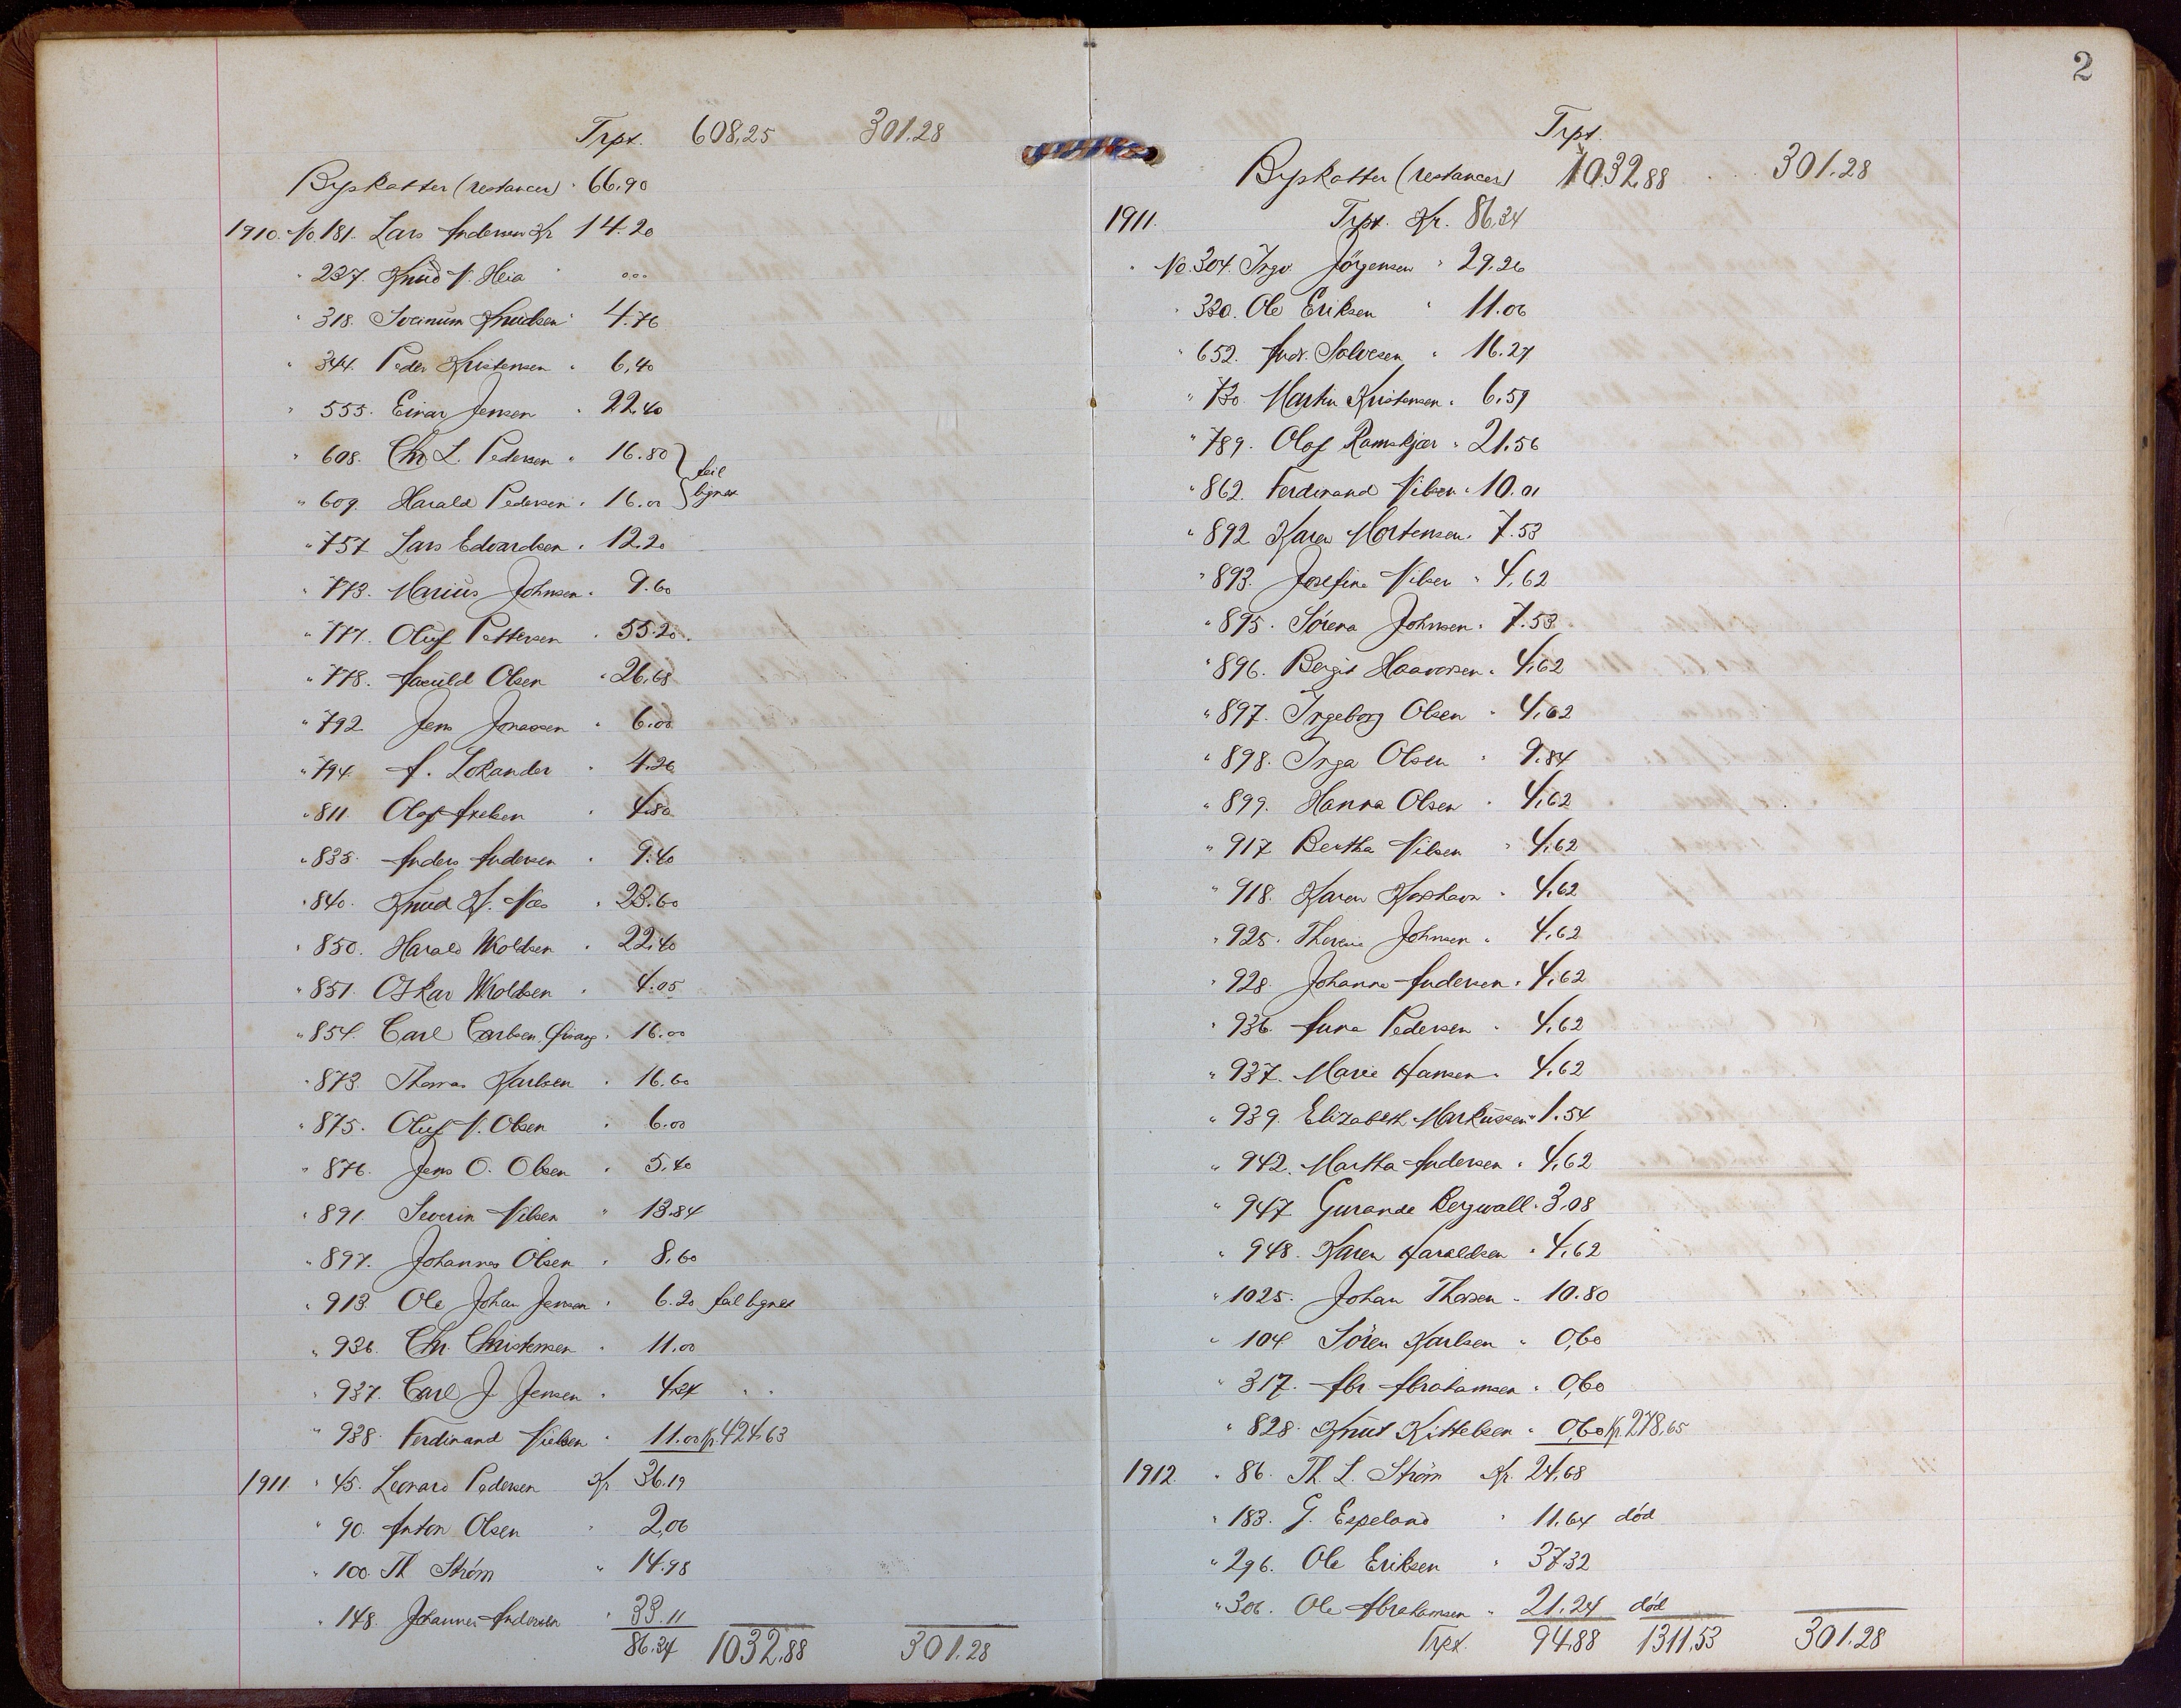 Trpt. 608,25 301.28
Byskatter (restancer) " 66,90
1910. No 181. Lars Andersen Kr 14.20
" 227. Knud N. Heia " ...
" 318. Knudsen " 4.76
" 344. Peder Kristensen " 6,40
" 555. Einar Jensen " 22,40
" 608. Chr L. Pedersen " 16.80 } feil
" 609. Harald Pedersen " 16.00 } lignet
" 757 Lars Edvardsen " 12,20
" 773. Marius Johnsen " 9.60
" 777. Oluf Pettersen " 55.20
" 778. Olsen " 26,68
" 792 Jens Jonassen " 6.00
" 794. A. Lokander " 4.26
" 811. Olaf Axelsen " 4.80
" 835. Anders Andersen " 9.40
" 840. Knud K. Næs " 23.60
" 850. Harald Woldsen " 22,40
" 851. Oskar Woldsen " 4.05
" 854. Carl Carlsen " 16.00
" 873. Thomas Karlsen " 16.60
" 875. Oluf N. Olsen " 6.00
" 876. Jens O. Olsen " 5,40
" 891. Severin Nilsen " 13.84
" 897. Johannes Olsen " 8,60
" 913. Ole Johan Jensen " 6.20 feil lignet
" 936. Chr. Christensen " 11,00
" 937. Carl J Jensen " 4.24 " "
" 938. Ferdinand Nielsen " 11.00 Kr 424,63
1911. " 45. Leonard Pedersen Kr 36.19
" 90. Anton Olsen " 2,06
" 100. Th Strøm " 14.98
" 148. Johannes Andersen " 33.11
86.34 1032,88 301.28
2
Trpt.
Byskatter (restancer) 1032,88 301.28
1911. Trpt. Kr. 86,34
" No. 304. Ingv. Jörgensen " 29,26
" 320. Ole Eriksen " 11.06
" 652. Andr. Salvesen " 16.27
" 730. Martin Kristensen " 6.59
" 789. Olaf Ramskjær " 21.56
" 862. Ferdinand Nilsen " 10.01
" 892 Karen Mortensen " 7.53
" 893. Josefine Nilsen " 4,62
" 895. Sörena Johnsen " 7.53
" 896. Bergit Haavorsen " 4,62
" 897. Ingeborg Olsen " 4,62
" 898. Inga Olsen " 9.84
" 899. Hanna Olsen " 4,62
" 917 Bertha Nilsen " 4,62
" 918. Karen " 4,62
" 925. Johnsen " 4,62
" 928. Johanne Andersen " 4,62
" 936. Anna Pedersen " 4,62
" 937. Marie Hansen " 4,62
" 939. Elizabeth Markussen " 1.54
" 942. Martha Andersen " 4,62
" 947 Gurande Bergwall " 3,08
" 948. Karen Haraldsen " 4,62
" 1025. Johan Thorsen " 10.80
" 104. Sören Karlsen " 0,60
" 317. Abr Abrahamsen " 0,60
" 828. Knut Kittelsen " 0,60 Kr 278,65
1912. " 86. Th. L. Strøm Kr. 24,68
" 183. G. Espeland " 11,64 död
" 296. Ole Eriksen " 37.32
" 306. Ole Abrahamsen " 21.24 död
Trpt. 94.88 1311,53 301.28